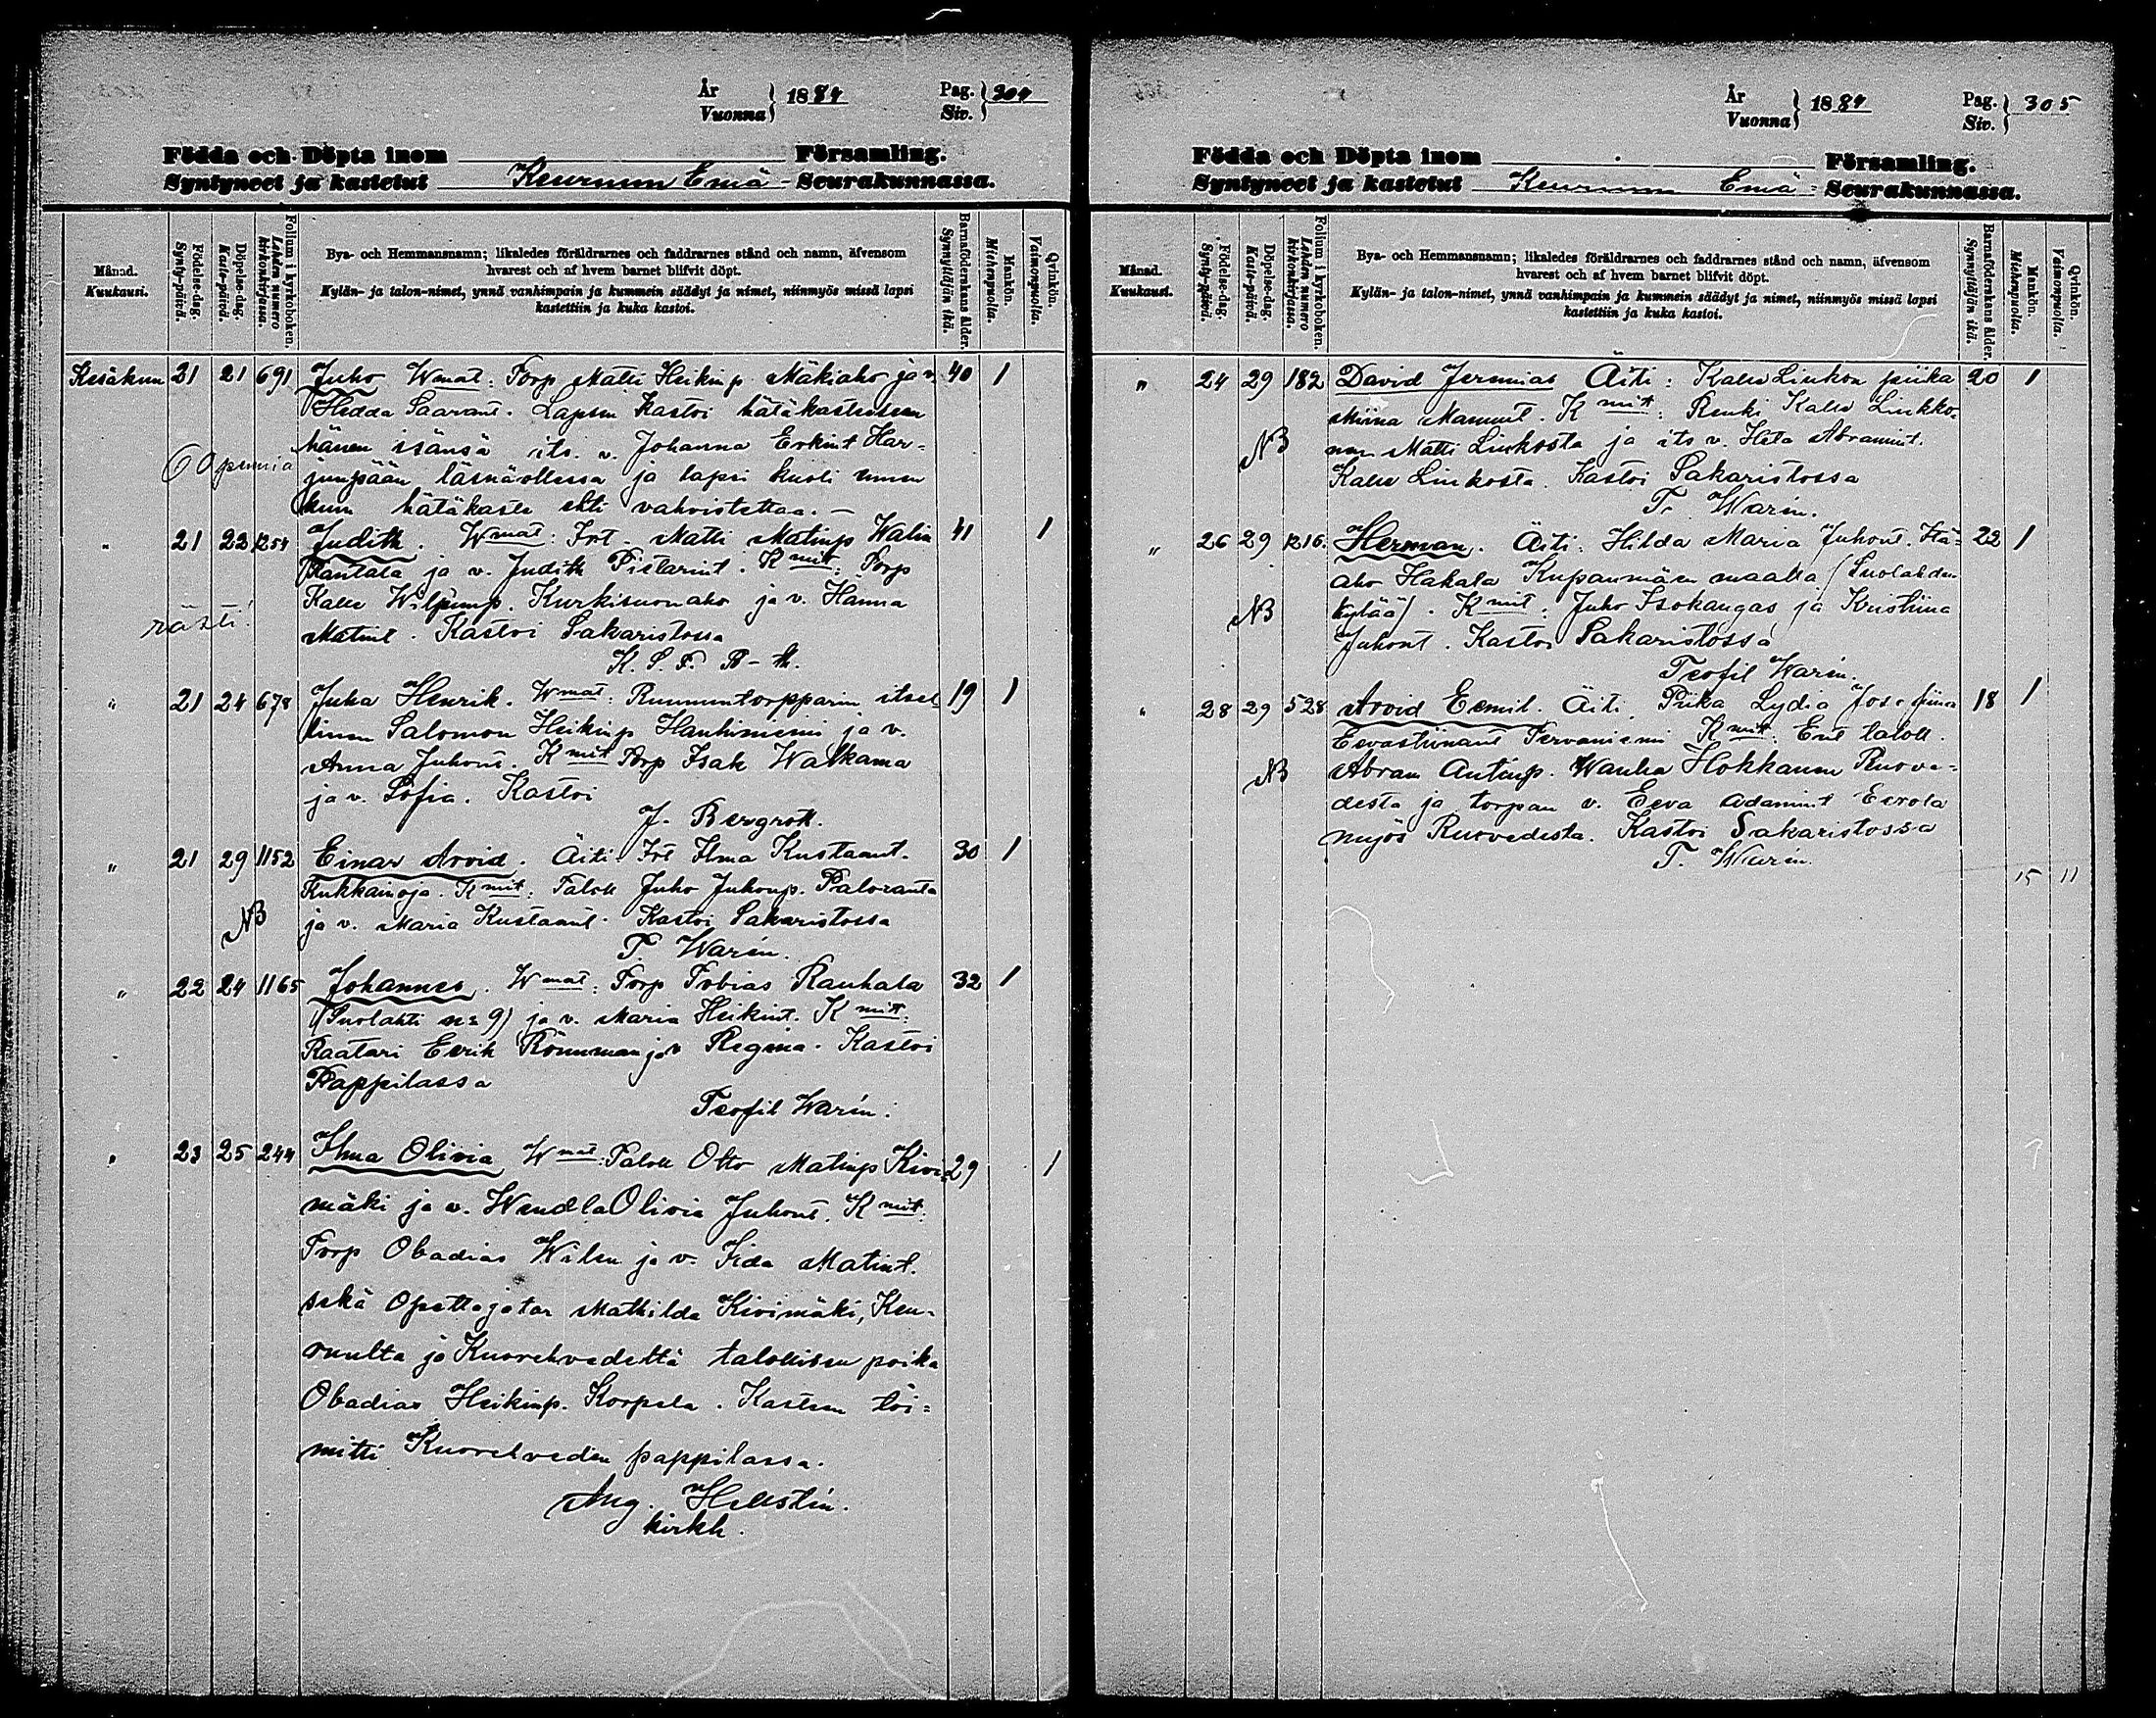 År
Vuonna } 1884
Pag.
Siv. } 304
Födda och Döpta inom Församling.
Syntyneet ja kastetut Keuruun Emä- Seurakunnassa.
Månad.
Kuukausi.
Födelse-dag.
Synty-päivä.
Döpelse-dag.
Kaste-päivä.
Folium i kyrkoboken.
Lehden numero kirkonkirjassa.
Bya- och Hemmansnamn; likaledes föräldrarnes och faddrarnes stånd och namn, äfvensom
hvarest och af hvem barnet blifvit döpt.
Kylän- ja talon-nimet, ynnä vanhimpain ja kummein säädyt ja nimet, niinmyös missä lapsi
kastettiin ja kuka kastoi.
Barnaföderskans ålder.
Synnyttäjän ikä.
Mankön.
Miehenpuolia.
Qvinkön.
Vaimonpuolia.
Kesäkuu 21 21 691 Juho Wmat: Torp Matti Heikinp. Mäkiaho ja v. 40 1
Hedda Saarant. Lapsen kastoi hätäkasteeseen
hänen isänsä its. v. Johanna Erkint Har-
60 pennia
junpään läsnäollessa ja lapsi kuoli ennen
kuin hätäkaste ehti vahvistettaa. —
" 21 22 1254 Judith. Wmat: Irt. Matti Matinp Walin 41 1
Rantala ja v. Judith Pietarint. Kmit: Torp
Kalle Wiljamp. Kurkisuonaho ja v. Hanna
rästi!
Matint. Kastoi Sakaristossa
K. S. F. B-th.
" 21 24 678 Juha Henrik. Wmat: Ruununtorpparin itsel- 19 1
linen Salomon Heikinp Hauhiniemi ja v.
Anna Juhont. Kmit Torp Isak Walkama
ja v. Sofia. Kastoi
J. Bergroth.
" 21 29 1152 Einar Arvid. Äiti Irt Ilma Kustaant. 30 1
Kukkainoja. Kmit: Talok Juho Juhonp. Paloranta
NB
ja v. Maria Kustaant. Kastoi Sakaristossa
T. Warén.
" 22 24 1165 Johannes. Wmat: Torp Tobias Rauhala 32 1
(Suolahti n= 9) ja v. Maria Heikint. Kmit:
Raatari Eerik Rönnman ja v Regina. Kastoi
Pappilassa
Teofil Warén.
" 23 25 244 Ilma Olivia Wmat: Talok Otto Matinp Kivi- 29 1
mäki ja v. Wendla Olivia Juhont. Kmit:
Torp Obadias Wilen ja v. Iida Matint.
sekä Opettajatar Mathilda Kivimäki, Keu-
ruulta ja Kuorehvedeltä talollisen poika
Obadias Heikinp. Korpela. Kasteen toi-
mitti Kuorehveden pappilassa.
Aug. Hellstén.
kirkh.
År
Vuonna } 1884
Pag.
Siv. } 305
Födda och Döpta inom Församling.
Syntyneet ja kastetut Keuruun Emä- Seurakunnassa.
Månad.
Kuukausi.
Födelse-dag.
Synty-päivä.
Döpelse-dag.
Kaste-päivä.
Folium i kyrkoboken.
Lehden numero kirkonkirjassa.
Bya- och Hemmansnamn; likaledes föräldrarnes och faddrarnes stånd och namn, äfvensom
hvarest och af hvem barnet blifvit döpt.
Kylän- ja talon-nimet, ynnä vanhimpain ja kummein säädyt ja nimet, niinmyös missä lapsi
kastettiin ja kuka kastoi.
Barnaföderskans ålder.
Synnyttäjän ikä.
Mankön.
Miehenpuolia.
Qvinkön.
Vaimonpuolia.
" 24 29 182 David Jeremias Äiti: Kalle Liukon piika 20 1
Miina Mannint. Kmit: Renki Kalle Liukko-
NB
nen Matti Liukosta ja its v. Heta Abramint.
Kalle Liukosta. Kastoi Sakaristossa
T. Warén.
" 26 29 1216. Herman. Äiti: Hilda Maria Juhont. Hä- 22 1
aho Hakala Kupanmäen maalla (Suolahden
NB
kylää). Kmit: Juho Isokangas ja Kristiina
Juhont. Kastoi Sakaristossa
Teofil Warén.
" 28 29 528 Arvid Eemil. Äiti. Piika Lydia Josefiina 18 1
Eevastiinant Tervaniemi Kmit: Ent talok.
NB
Abram Antinp. Wanha Hokkanen Ruove-
destä ja torpan v. Eeva Adamint Eerola
myös Ruovedestä. Kastoi Sakaristossa
T. Warén.
15 11